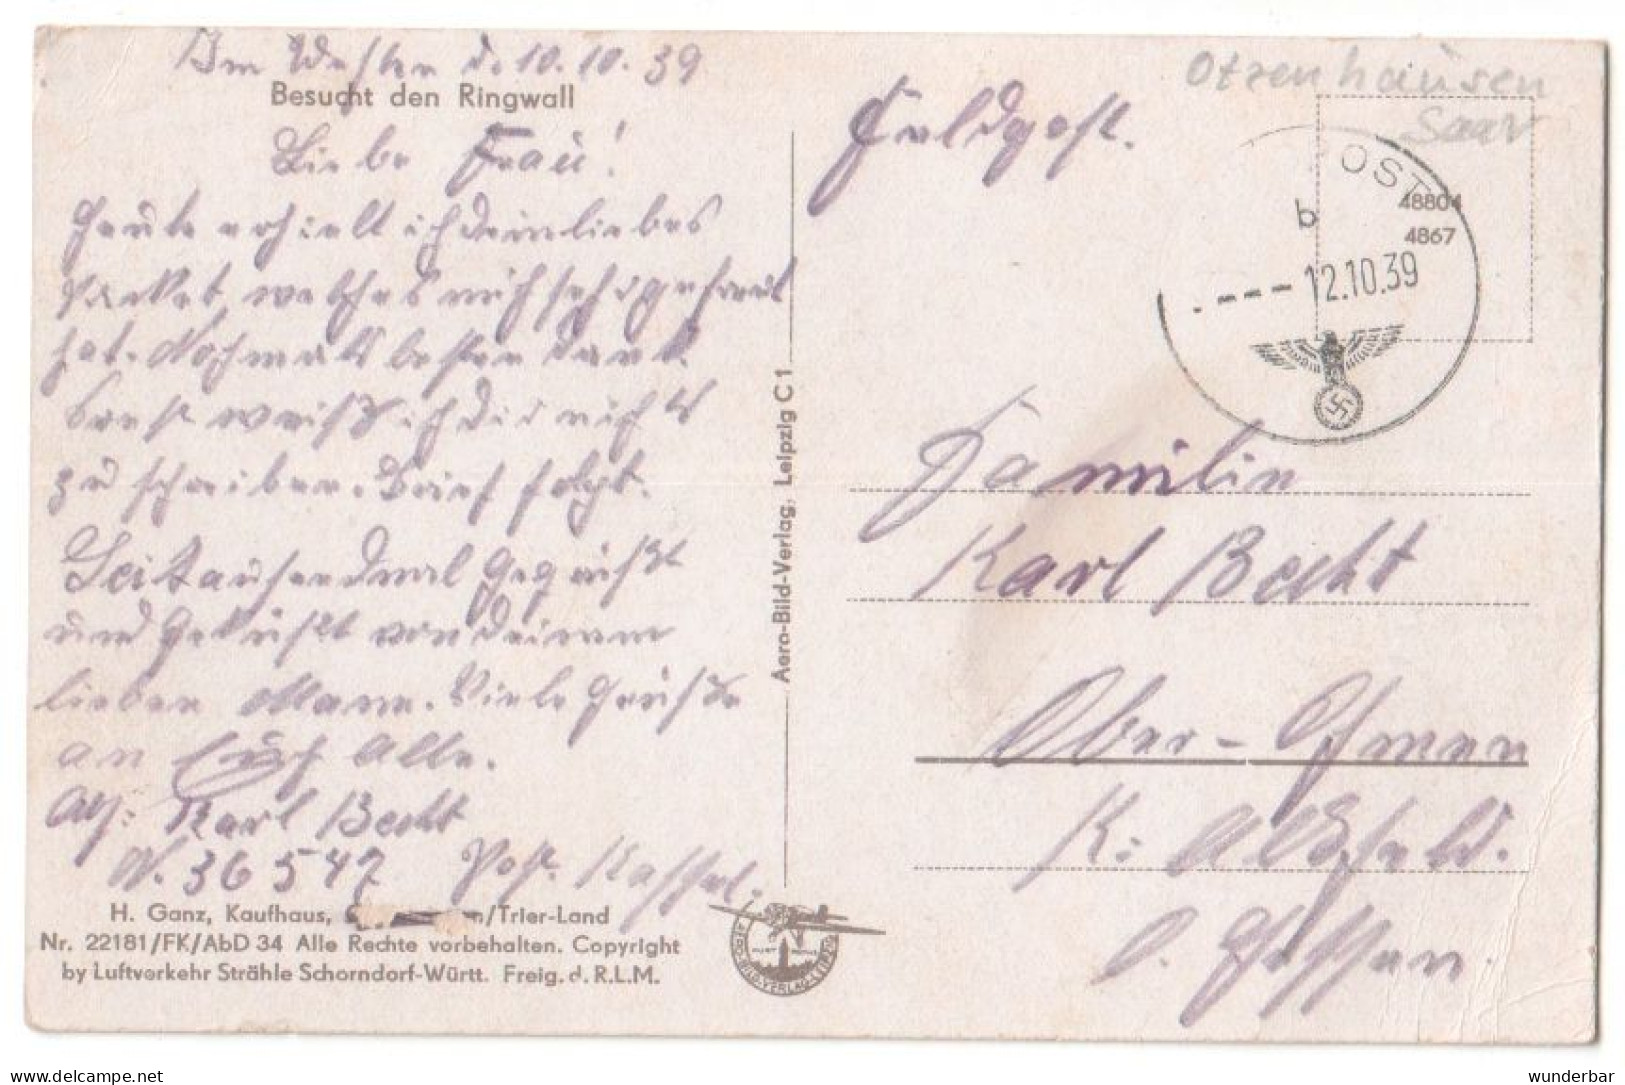 Im Westen d. 10.10.39
Besucht den Ringwall
Liebe Frau!
Heute erhielt ich dein liebes
Packet, welches mich sehr gefreut
hat. Nochmals besten Dank.
Sonst weiß ich dir nichts
zu schreiben. Brief folgt.
Seit tausendmal gegrüßt
und geküßt von deinem
lieben Mann. Viele Grüße
an Euch Alle.
Abs: Karl Becht
N. 36547 Post. Kassel.
H. Ganz, Kaufhaus, n/Trier-Land
Nr. 22181/FK/AbD 34 Alle Rechte vorbehalten. Copyright
by Luftverkehr Strähle Schorndorf-Württ. Freig. d. R.L.M.
Aero-Bild-Verlag, Leipzig C 1
AERO-BILD-VERLAG-LEIPZIG
Otzenhausen
Saar
Feldpost.
POST
b
48804
4867
---12.10.39
Familie
Karl Becht
Ober-Ofmen
K: Alsfeld.
O. Hessen.
www.delcampe.net
wunderbar